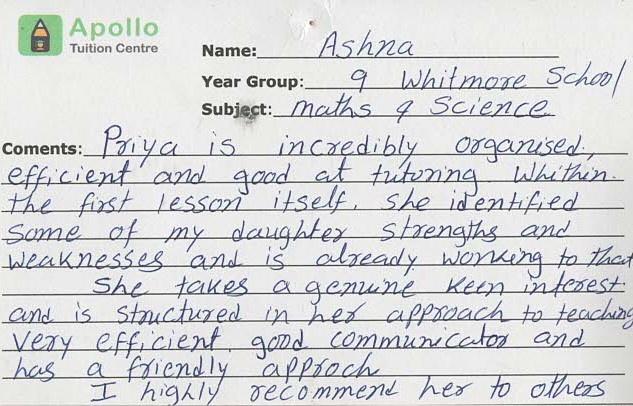 Apollo
Tuition Centre
Name: Ashna
Year Group: 9 Whitmore School
Subject: maths & Science
Coments: Priya is incredibly organised,
efficient and good at tutoring. Whithin
the first lesson itself, she identified
some of my daughter strengths and
weaknesses and is already working to that
She takes a genuine keen interest
and is structured in her approach to teaching
Very efficient, good communicator and
has a friendly approch
I highly recommend her to others